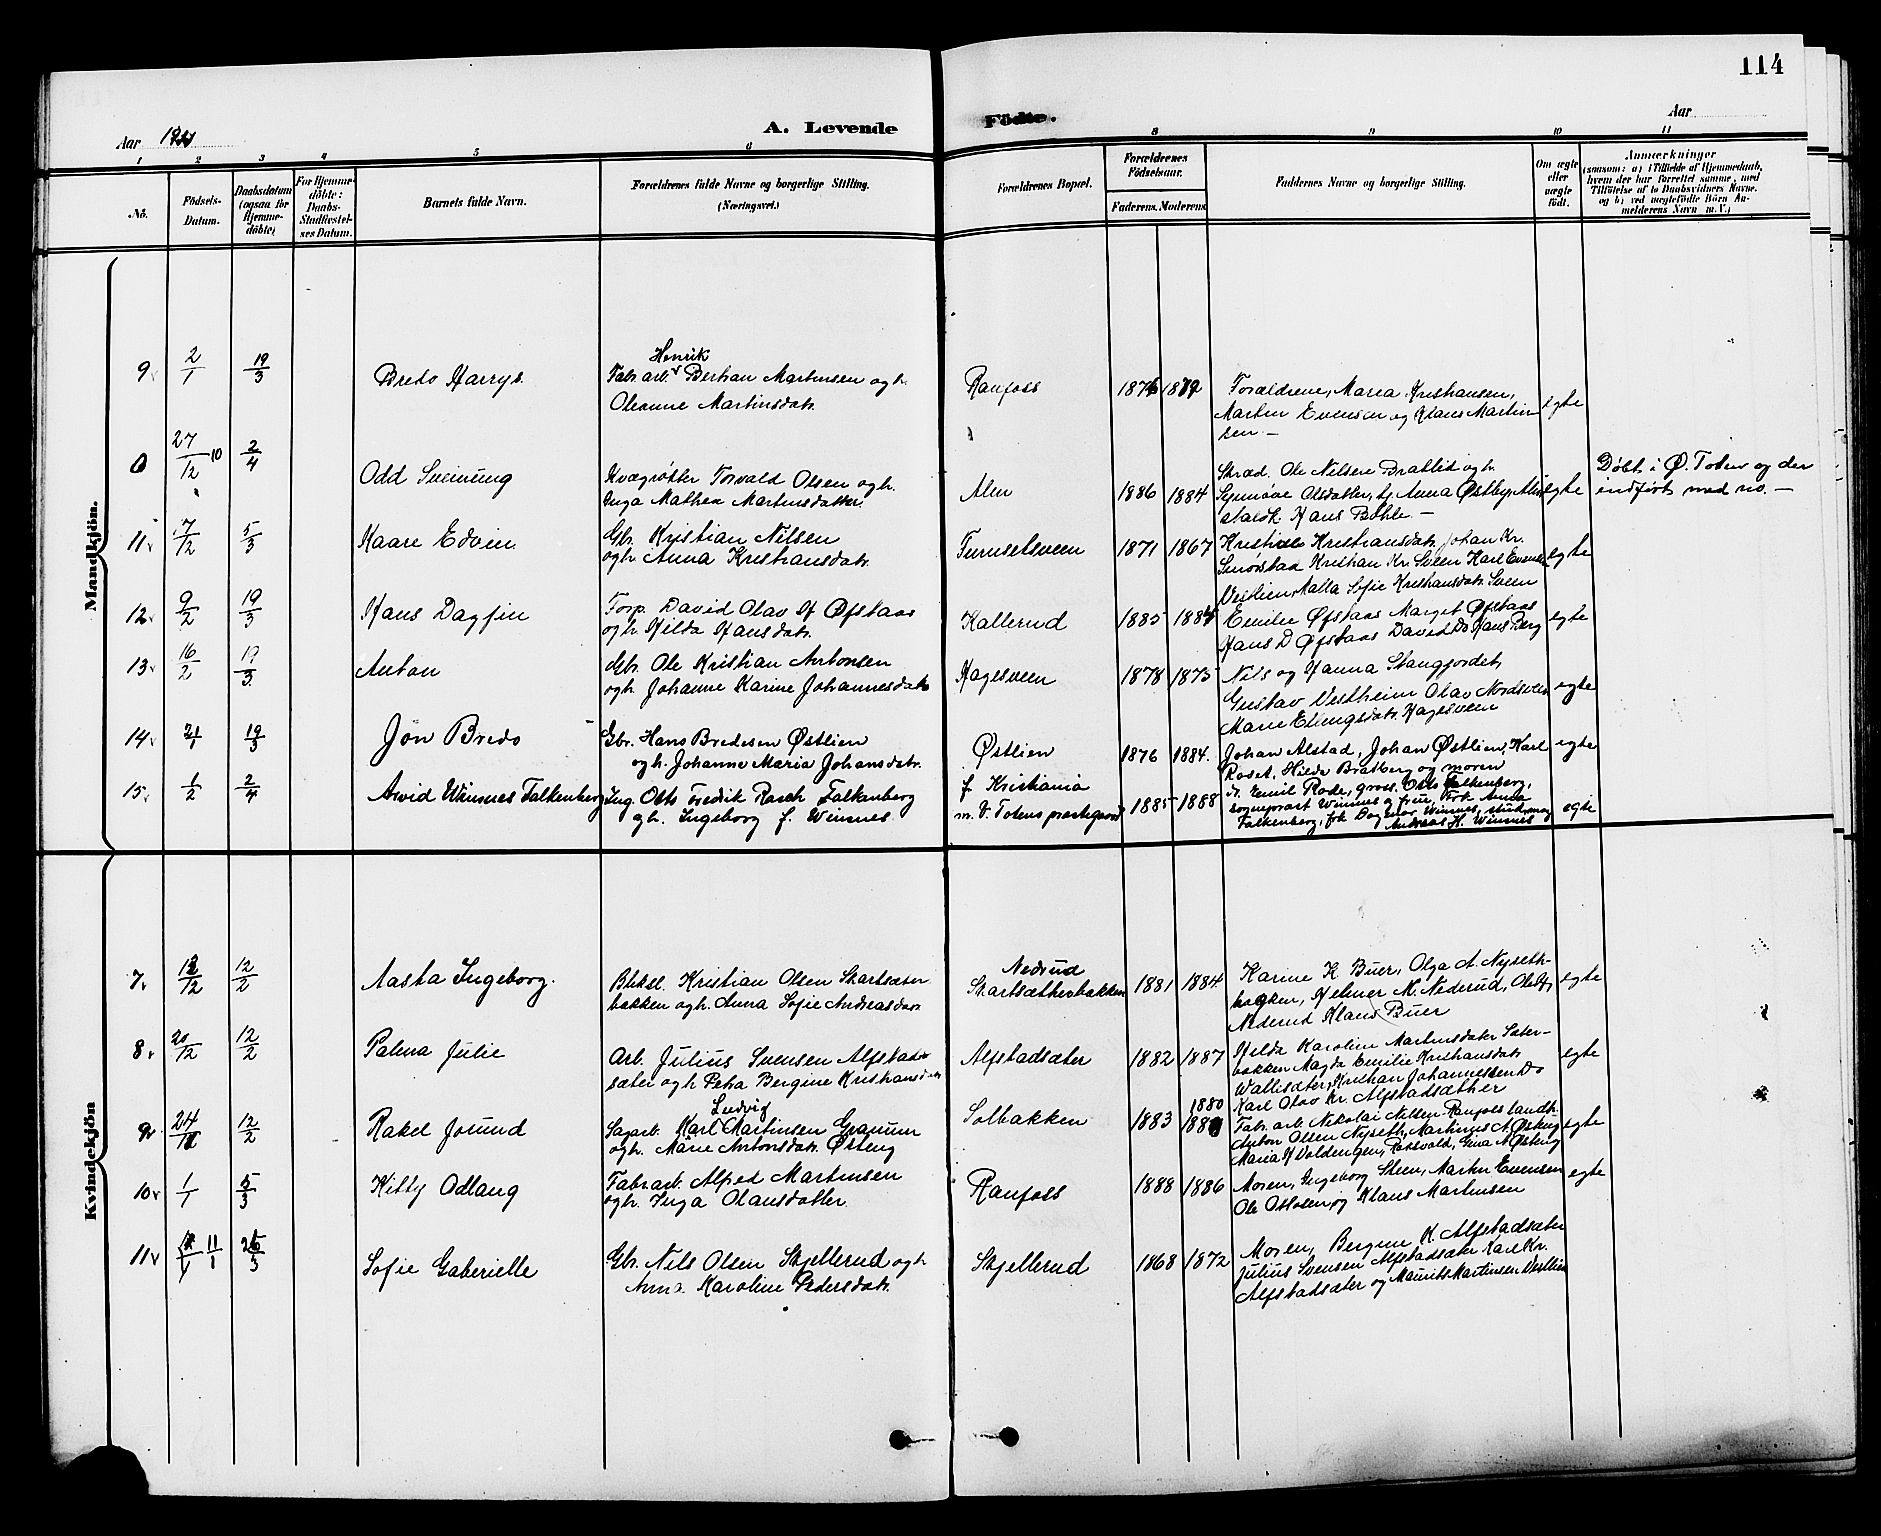 114
Aar
A. Levende Födte.
Aar
1 2 3 4 5 6 8 9 10 11
No.
Födsels-Datum.
Daabsdatum (ogsaa for Hjemme-döbte)
For Hjemme-döbte: Daabs-Stadfæstel-ses Datum.
Barnets fulde Navn.
Forældrenes fulde Navne og borgerlige Stilling.
(Næringsvei.)
Forældrenes Bopæl.
Forældrenes Födselsaar.
Faderens. Moderens.
Faddernes Navne og borgerlige Stilling.
Om ægte eller uægte födt.
Anmærkninger
(saasom: a) i Tilfælde af Hjemmedaab,
hvem der har forrettet samme, med
Tilföielse af to Daabsvidners Navne.
og b) ved uægtefödte Börn An-
melderens Navn m. V.)
Mandkjön.
9 2/1 19/3 Bredo Harrys.
Henrik
Fabr.arb. Berthan Martinsen og h.
Oleanne Martinsdatr.
Raufoss 1876 1872
Forældrene, Maria Kristiansen,
Martin Evensen og Klaus Martin
sen. —
egte
27/12 10 2/4 Odd Sveinung
Kvægrøkter Torvald Olsen og h.
Inga Mathea Martinsdatter.
Alm 1886 1884
Skræd. Ole Nilsen Bratlid og h.
Synnøve Olsdatter, Anna Østby
Hans Bøhle. —
egte
Døbt i Ø. Toten og der
indført med no. —
11 7/12 5/3 Kaare Edvin.
Gbr. Kristian Nilsen
og h. Anna Kristiansdatr.
Furusetsveen 1871 1867
Kristiansdatr. Johan Kr.
Smørstad Kristian Kr. Sveen Karl Evensen
Vestlien, Malla Sofie Kristiansdatr. Sveen
egte
12 9/2 19/3 Hans Dagfin
Torp. David Olav H Øfstaas
og h. Hilda Hansdatr.
Kallerud 1885 1884
Emilie Øfstaas Marget Øfstaas
Hans D Øfstaas David Do Hans Berg
egte
13 16/2 19/3 Anton
Gbr. Ole Kristian Antonsen
og h. Johanne Karine Johannesdatr.
Hagesveen 1878 1873
Nils og Hanna Stangjordet,
Gustav Vestheim Olav Nordsveen
Marie Elingsdatr. Hagesveen
egte
14 21/1 19/3 Jön Bredo
Gbr. Hans Bredesen Østlien
og h. Johanne Maria Johansdatr.
Østlien 1876 1884.
Johan Alstad, Johan Østlien, Karl
Roset, Hilda Bratberg og moren
egte
15 1/2 2/4 Arvid Winsnes Falkenberg
Ing. Otto Fredrik Rasch Falkenberg
og h. Ingeborg f. Winsnes
f. Kristiania
m. V. Totens prestegaard 1885 1888
Emil Rode, gross. Otto Falkenberg,
sogneprest Winsnes og frue, Frk Anna
Falkenberg, frk Dagmar Winsnes, stud.
Andreas H. Winsnes
egte
Kvindekjön
7 12/12 12/2 Aasta Ingeborg.
Bliksl. Kristian Olsen Skartsæter
bakken og h. Anna Sofie Andreasdatr.
Nedrud
Skartsætherbakken 1881 1884
Karine K Buer, Olga A. Nyseth-
bakken, Helmer M. Nederud, Ole
Nederud Klaus Buer
egte
8 20/12 12/2 Palma Julie
Arb. Julius Svensen Alfstad-
sæter og h Petra Bergine Kristiansdatr.
Alfstadsæter 1882 1887
Hilda Karoline Martinsdatr Sæter-
bakken Magda Emilie Kristiansdatr.
Wallisæter, Kristian Johannessen Do
Karl Olav Kr. Alfstadsæther
egte
9 24/ 12/2 Rakel Jorund
Ludvig
Sagarb. Karl Martinsen Granum
og h. Marie Antonsdatr. Østeng
Solbakken 1883 1880
Fabr. arb. Nikolai Nilsen Raufoss landh.
Anton Olsen Nyseth, Martinus A. Østeng
Maria H Voldengen, Gina A Østeng
egte
10 1/1 5/3 Kitty Odlaug
Fabr.arb. Alfred Martinsen
og h. Inga Olausdatter.
Raufoss 1888 1886
Moren, Ingeborg Steen, Martin Evensen
Ole Ottosen, og Klaus Martinsen
egte
11 11/1 26/3 Sofie Gaberielle
Gbr. Nils Olsen Skjellerud og h.
Anna Karoline Pedersdatr.
Skjellerud 1868 1872
Moren, Bergine K. Alfstadsæter
Julius Svensen Alfstadsæter Karl Kr.
Alfstadsæter og Maurits Martinsen Vestlien